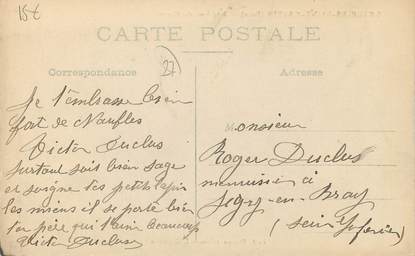 15€
CARTE POSTALE
27
Correspondance
Adresse
Je t'embrasse bien
fort de Neaufles
Victor Duclos
surtout soit bien sage
et soigne tes petits lapin
les miens il se porte bien
ton père qui t'aime beaucoup
Victor Duclos
Monsieur
Roger Duclos
menuisier à
en-Bray
(seine Inferieu)